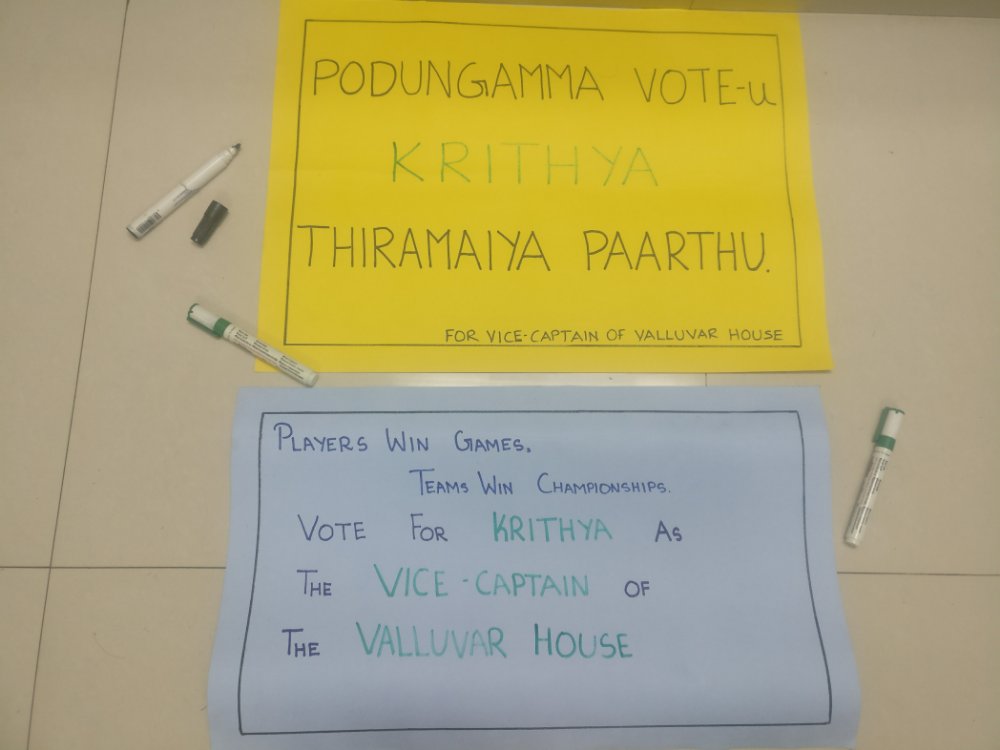 PODUNGAMMA VOTE-u
KRITHYA
THIRAMAIYA PAARTHU.
FOR VICE-CAPTAIN OF VALLUVAR HOUSE
PLAYERS WIN GAMES.
TEAMS WIN CHAMPIONSHIPS.
VOTE FOR KRITHYA AS
THE VICE-CAPTAIN OF
THE VALLUVAR HOUSE